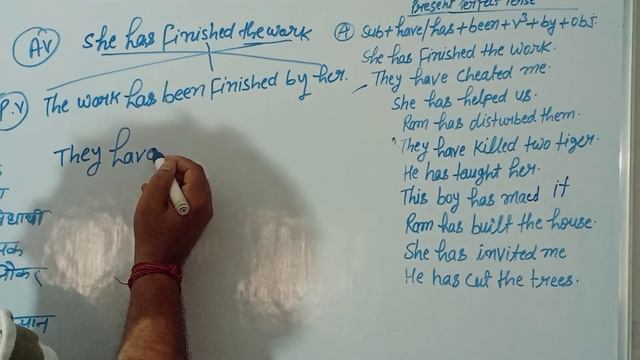 Present Perfect Tense
A.V She has Finished the work
P.V The work has been Finished by her.
They have
(A) Sub + have/has + been + v³ + by + obj.
She has Finished the work.
They have cheated me.
She has helped us.
Ram has disturbed them.
They have killed two tiger.
He has taught her.
This boy has maed it
Ram has built the house.
She has invited me
He has cut the trees.